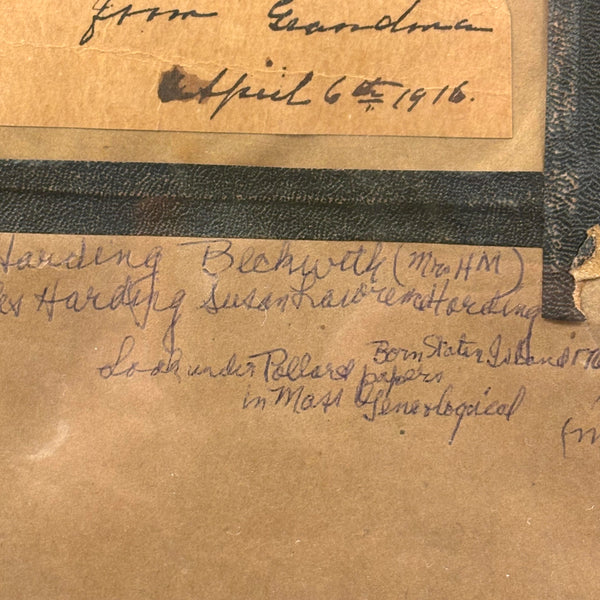 from Grandma
April 6th 1916.
Harding Beckwith (Mrs HM)
Harding Susan Lawrem Harding
Born Staten Island 176
Look under Pollard papers
in Mass Geneological
(m